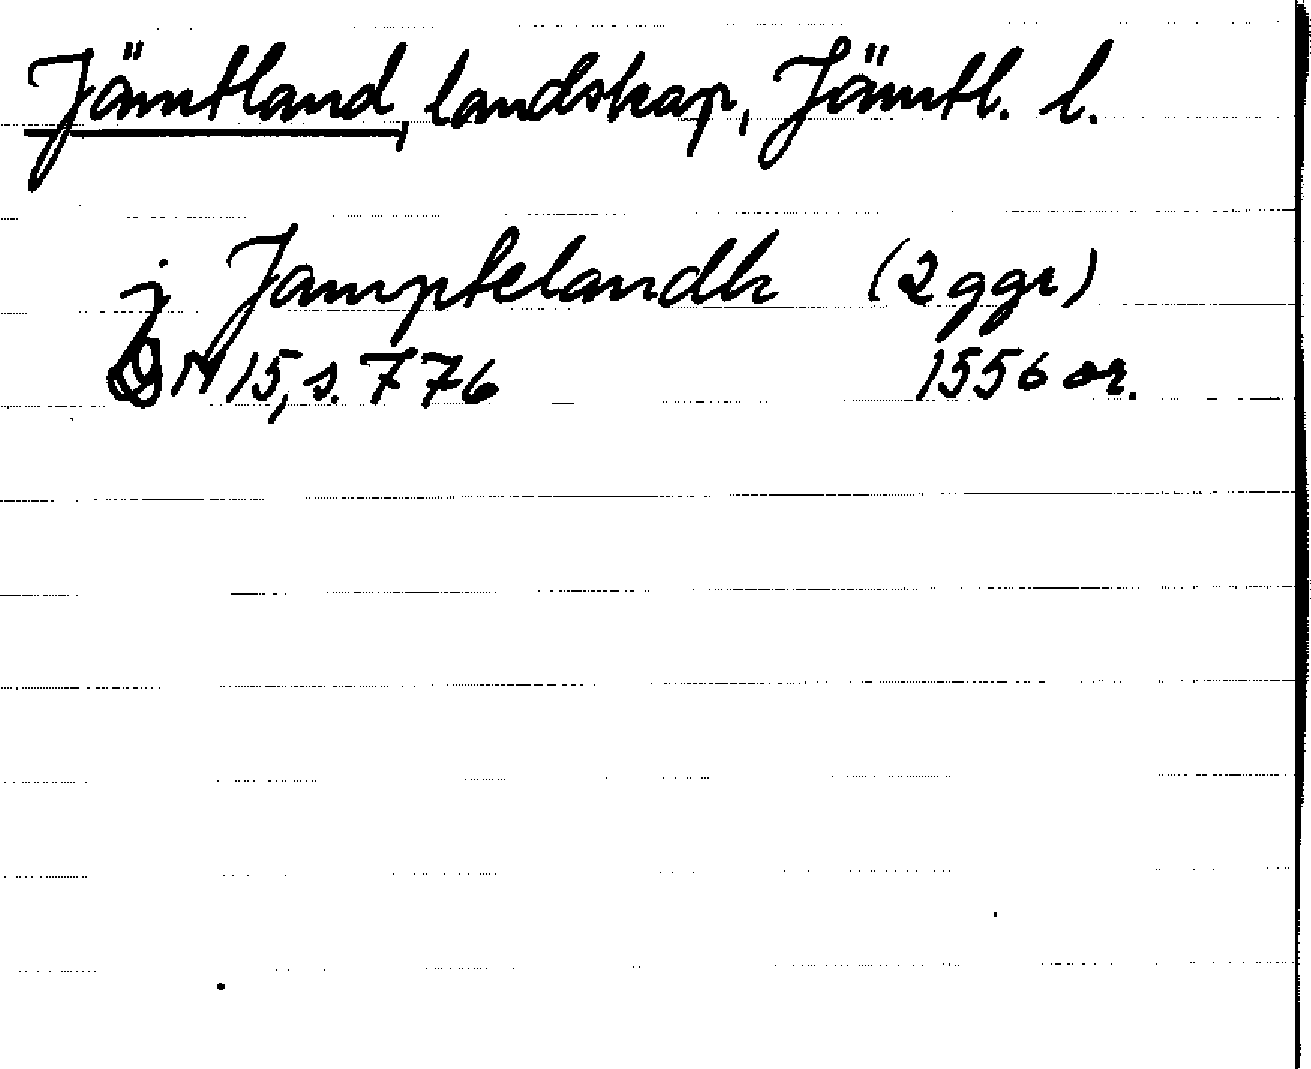 Jämtland, landskap, Jämtl. l.
j Jamptelandh (2 ggr)
DN 15, s. 776 1556 or.